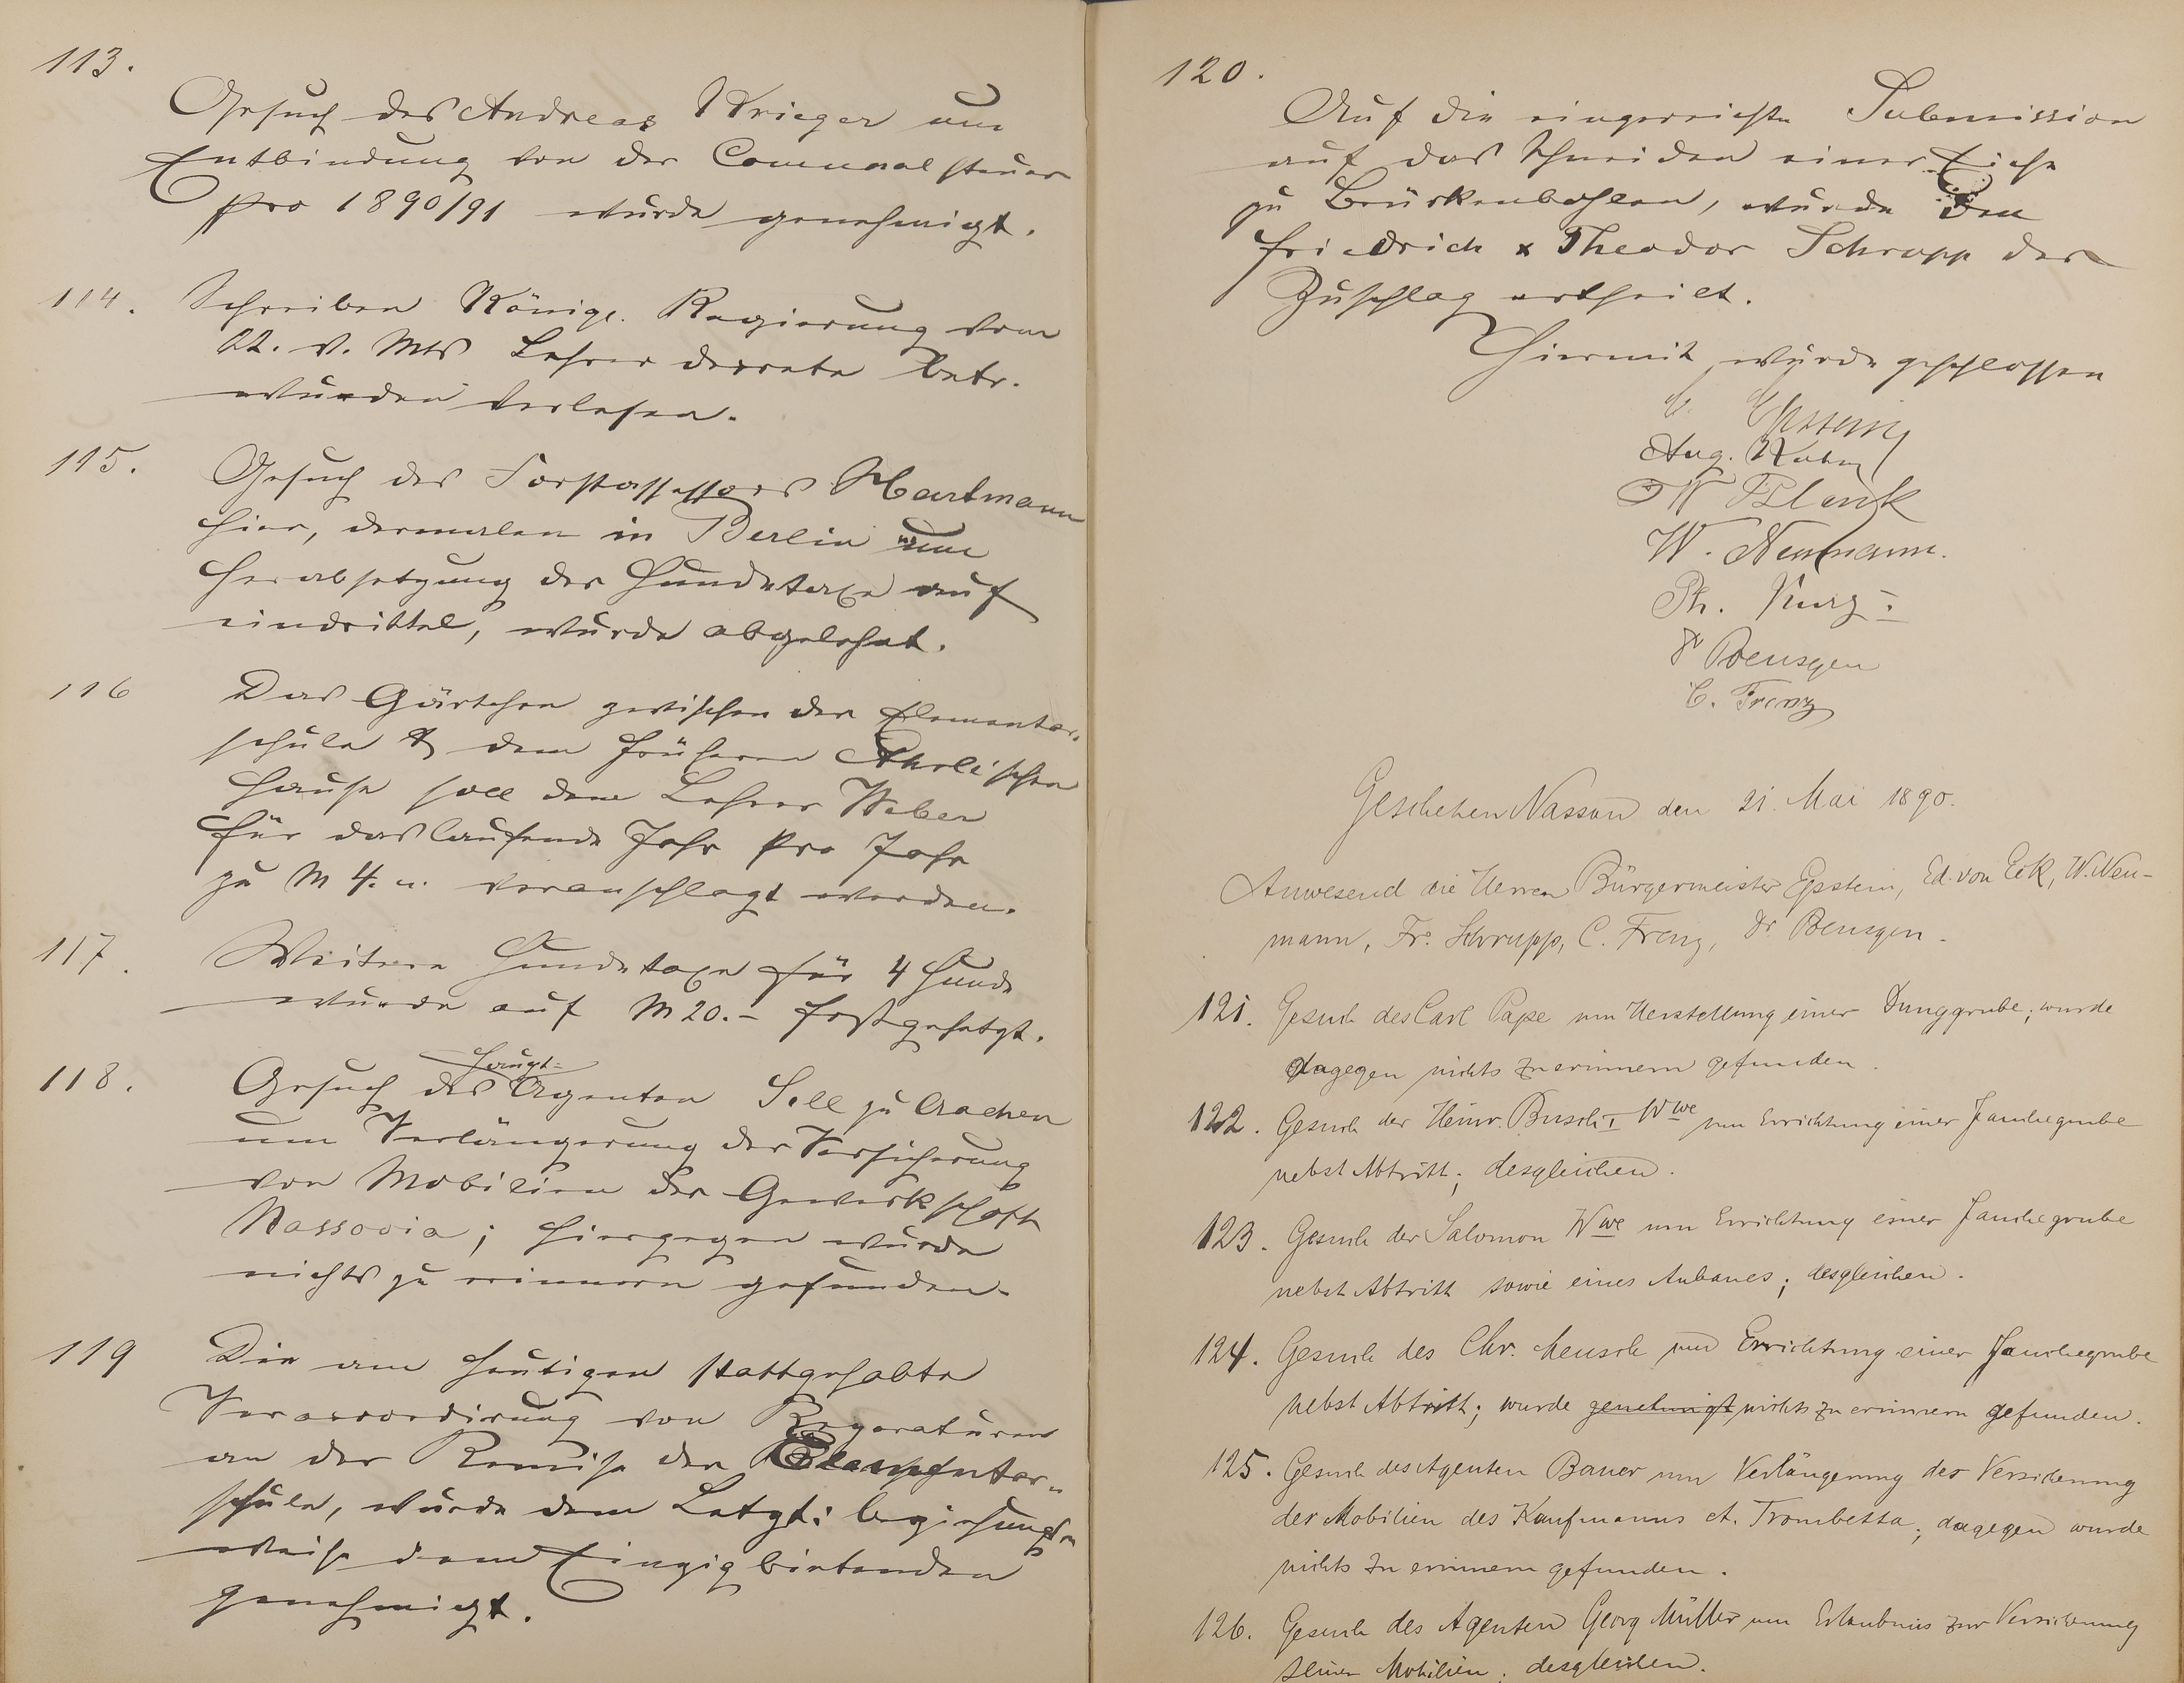 113.
Gesuch des Andreas Krieger um
Entbindung von der Communalsteuer
pro 1890/91 wurde genehmigt.
114. Schreiben Königl. Regierung vom
22. v. Mts Lehrer betr.
wurden verlesen.
115. Gesuch des Forstassessors Hartmann
hier, dermalen in Berlin um
Herabsetzung der Hundetaxe auf
eindrittel, wurde abgelehnt.
116 Das Gärtchen zwischen der Elementar-
schule & dem früheren
Hause soll dem Lehrer Weber
für das laufende Jahr pro Jahr
zu M 4.- veranschlagt werden.
117. Weitere Hundetaxe für 4 Hunde
wurde auf M 20.- festgesetzt.
118. Gesuch des Haupt-Agenten Sell zu Aachen
um Verlängerung der Versicherung
von Mobilien der Gewerkschaft
Nassovia; hiergegen wurde
nichts zu erinnern gefunden.
119 Die am heutigen stattgehabte
Veraccordirung von Reparaturen
an der Remise der Elementar-
schule, wurde dem Letzt- beziehungs-
weise dem Einzigbietenden
genehmigt.
120.
Auf die eingereichte Submission
auf das Schneiden einer Eiche
zu Brückenbohlen, wurde den
Friedrich & Theodor Schrupp der
Zuschlag ertheilt.
Hiermit wurde geschlossen
Epstein
Aug. Kuhn
W. Neumann.
Ph. Kurz I.
Dr Poensgen
C. Frenz
Geschehen Nassau den 21. Mai 1890.
Anwesend die Herren Bürgermeister Epstein, Ed. von Eck, W. Neu-
mann, Fr. Schrupp, C. Frenz, Dr. Poensgen.
121. Gesuch des Carl Pape um Herstellung einer Dunggrube; wurde
dagegen nichts zu erinnern gefunden.
122. Gesuch der Heinr. Busch I Wwe um Errichtung einer Jauchegrube
nebst Abtritt; desgleichen.
123. Gesuch der Salomon Wwe um Errichtung einer Jauchegrube
nebst Abtritt sowie eines Anbaues; desgleichen.
124. Gesuch des Chr. Meusch um Errichtung einer Jauchegrube
nebst Abtritt; wurde genehmigt nichts zu erinnern gefunden.
125. Gesuch des Agenten Bauer um Verlängerung der Versicherung
der Mobilien des Kaufmanns A. Trombetta; dagegen wurde
nichts zu erinnern gefunden.
126. Gesuch des Agenten Georg Müller um Erlaubnis zur Versicherung
seiner Mobilien; desgleichen.